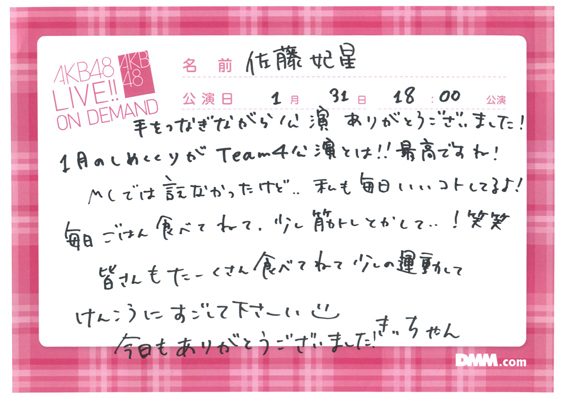 AKB48
LIVE!!
ON DEMAND
AKB
48
名前 佐藤妃星
公演日 1月 31日 18:00 公演
手をつなぎながら公演 ありがとうございました!
1月のしめくくりがTeam4公演とは!!最高ですね!
MCでは言えなかったけど.. 私も毎日いいコトしてるよ!
毎日ごはん食べてねて、少し筋トレとかして..!笑笑
皆さんもたーくさん食べてねて少しの運動して
けんこうにすごして下さーい
今日もありがとうございました!
きぃちゃん
DMM.com